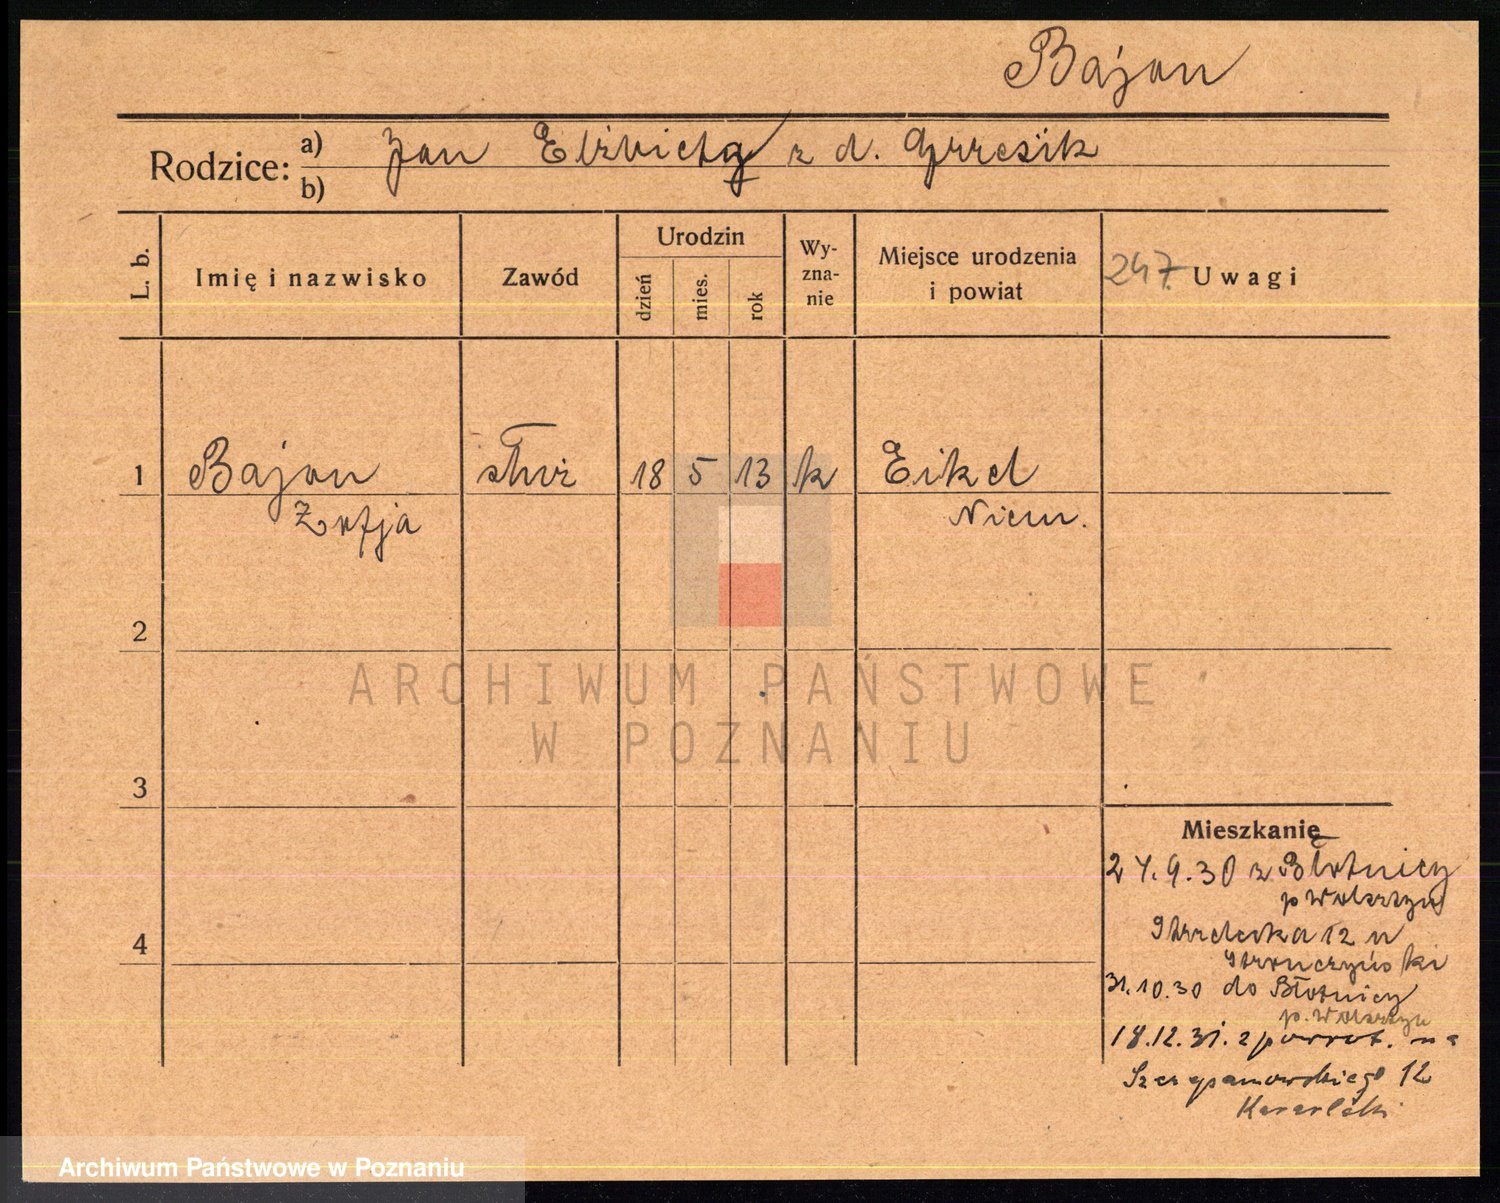 Bajon
Rodzice: a) Jan Elżbieta z d. Grzesik
b)
L. b.
Imię i nazwisko
Zawód
Urodzin
dzień
mies.
rok
Wy-
zna-
nie
Miejsce urodzenia
i powiat
247. Uwagi
1 Bajon służ 18 5 13 k Eikel
Zofja Niem.
2
ARCHIWUM PAŃSTWOWE
W POZNANIU
3
Mieszkanie
24.9.30 z Błotnicy
p Wolsztyn
Strzelecka 12 u
31.10.30 do Błotnicy
p. Wolsztyn
4
18.12.31. z powrot. na
Szczepanowskiego 12
Archiwum Państwowe w Poznaniu